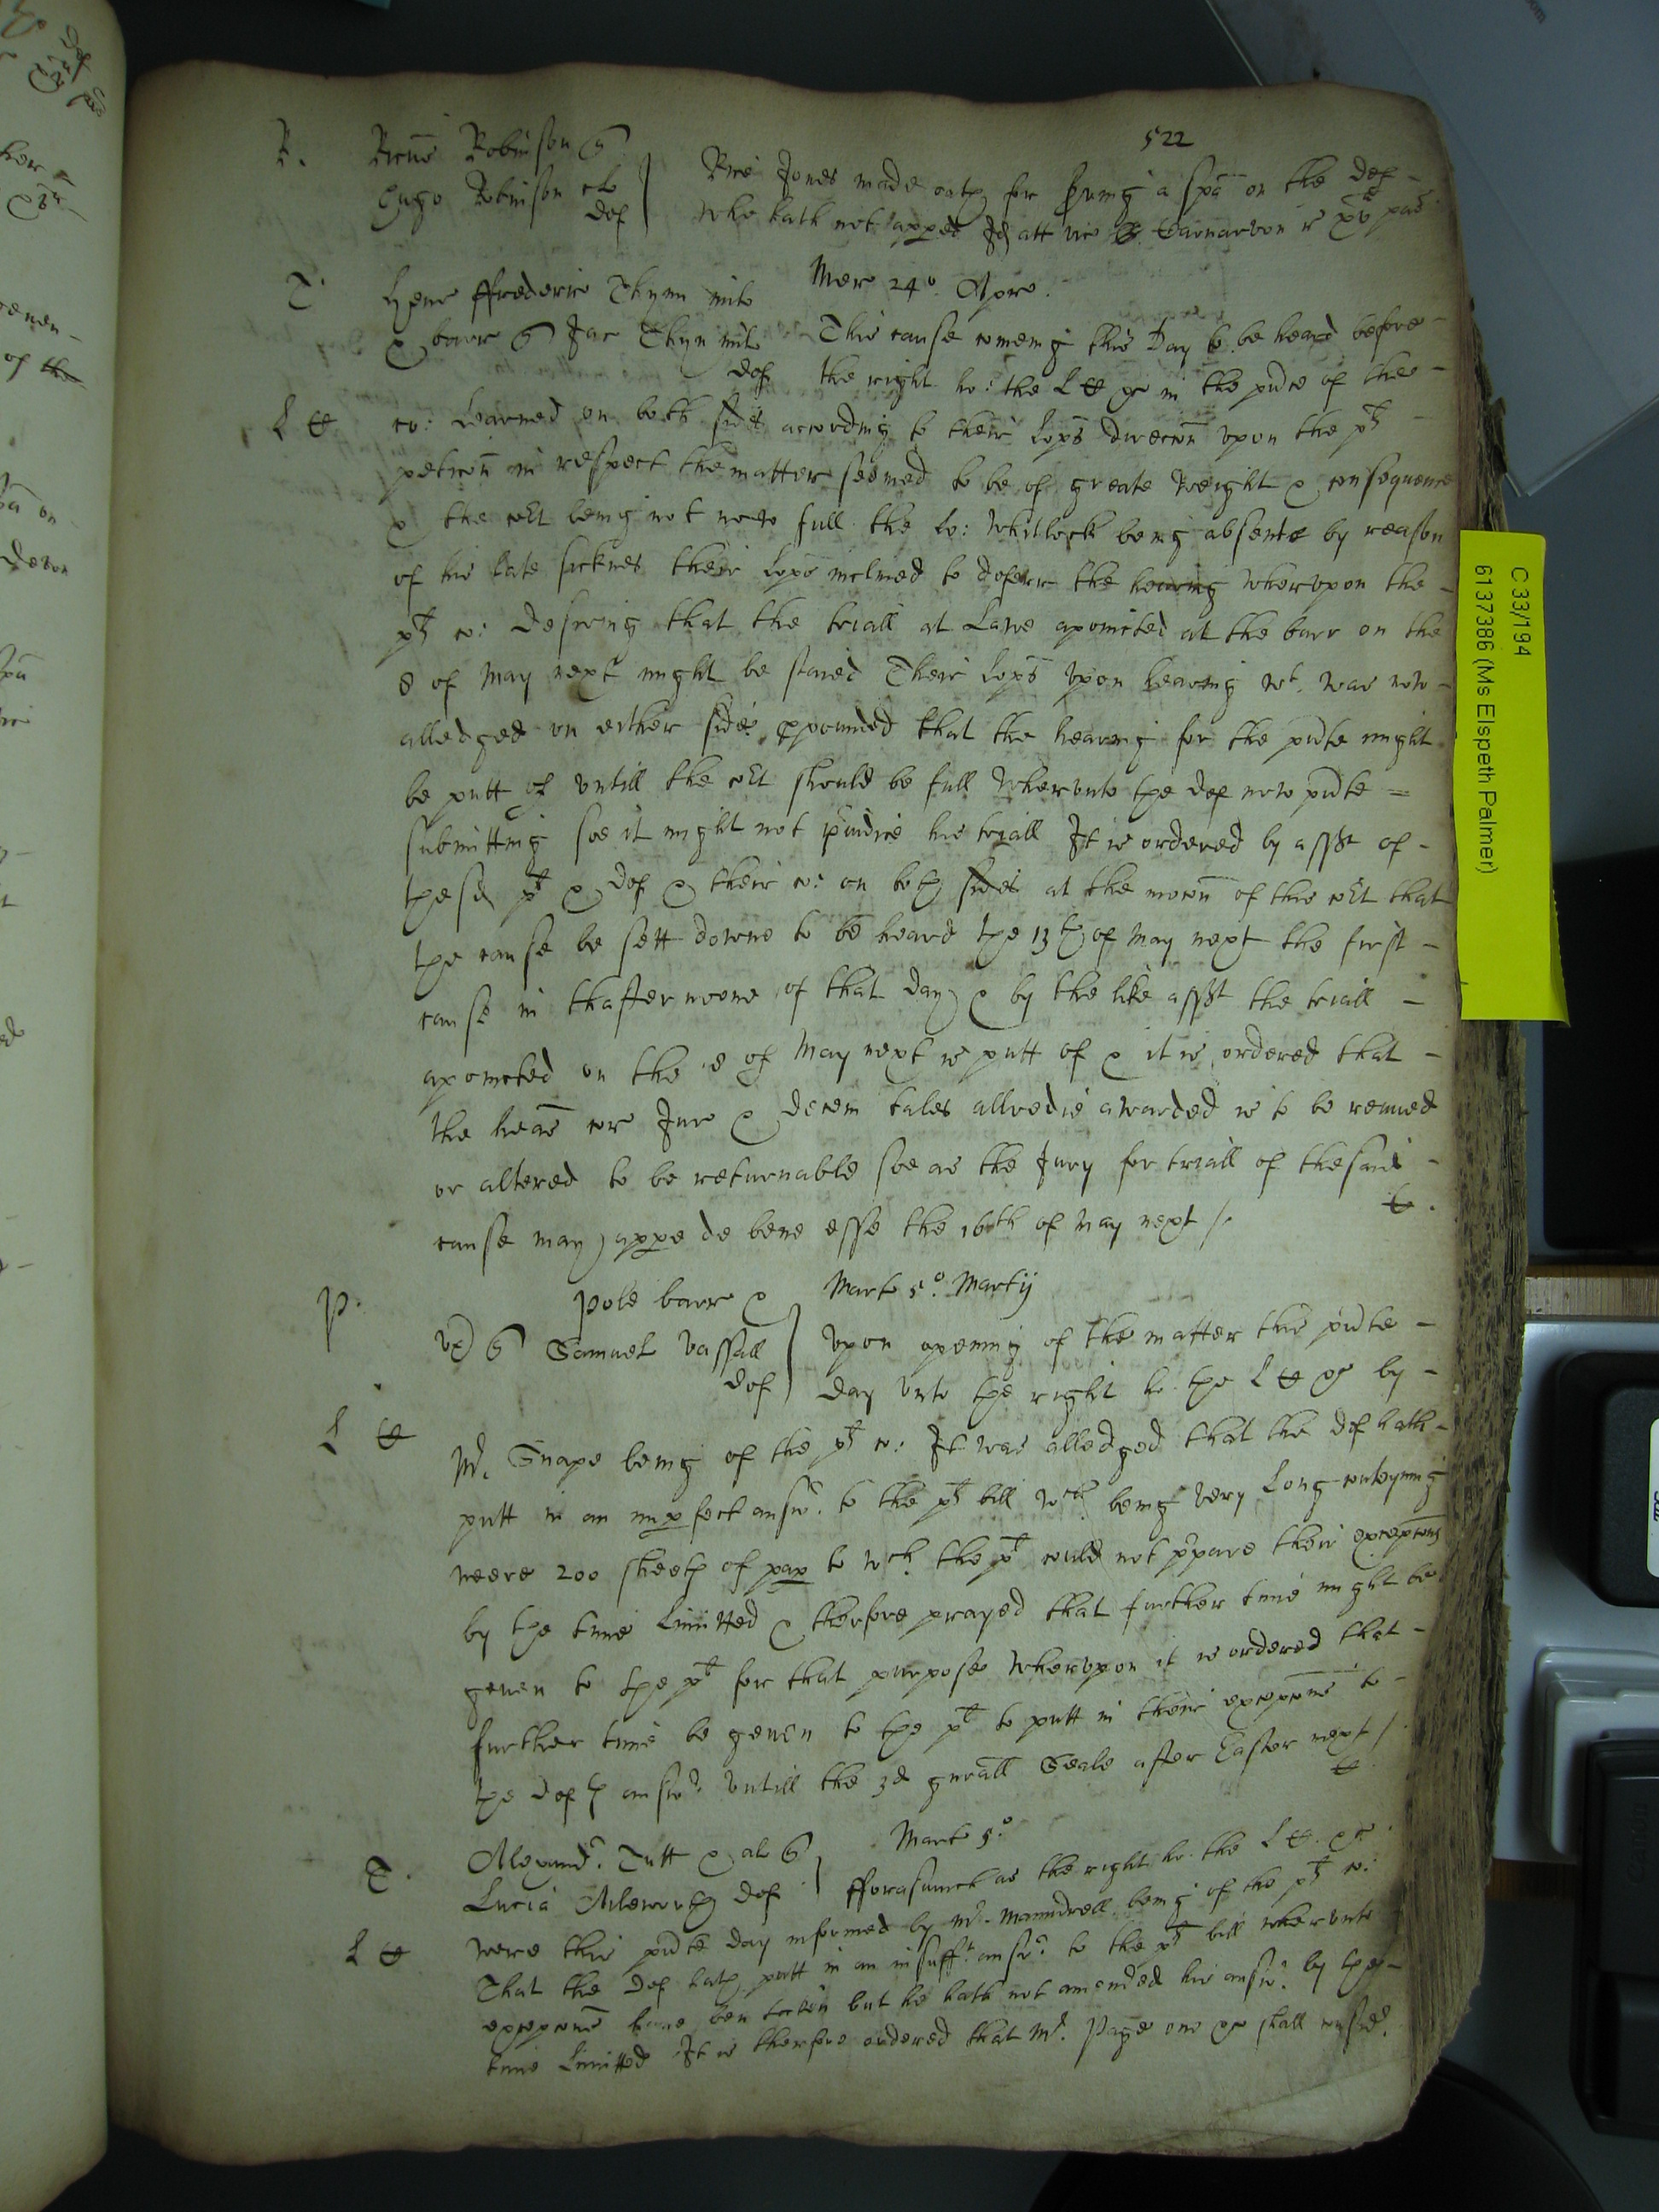 522
R. Ricūs Robinson
Hugo Robinson clo def
Rice Jones made oath for serving a spā on the def -
who hath not apped Id att vic Carnarvon is
T. Henr ffrederic Thynn milt
& barr Jac Thyn milt def
Mer 24o. Apre.
This cause comeing this day to be heard before -
the right ho: the L C &c in the pñce of the -
L C co: learned on both sides according to their lopps direccōn upon the plts -
peticōn in respect the matter seemed to be of greate weight & consequence
& the cort being not now full the lo: Whitlock being absente by reason
of his late sicknes their lopps inclined to deferr the hearing wherupon the -
plts co: desiring that the triall at Lawe apointed at the barr on the
8 of May next might be staied Their lopps upon hearing wt. was now -
alledged on either side ppounded that the hearing for the pñte might
be putt of untill the cort should be full wherunto the def now pñte =
submitting soe it might not piudice his triall It is ordered by asst of -
the sd plt & def & their co: on both sides at the mocōn of this cort that
the cause be sett downe to be heard the 13th of May next the first -
cause in thafternoone of that day & by the like asst the triall -
apointed on the 8 of May next is putt of & it is ordered that -
the heās cor Jur & decem tales allredie awarded is to be renued
or altered to be returnable soe as the Jury for triall of thesaid -
cause may appe de bene esse the 16th of May next /.
P. Pole barr &
Samuel Vassall
def
Marte 5o. Martij
Upon opening of the matter this pñte -
day unto the right ho. the L C &c by -
L C Mr. Snape being of the plts co: It was alledged that the def hath -
putt in an impfect answr. to the plts bill wch. being very Long conteyning
neere 200 sheets of pap to wch. the plt could not ppare their excepcōns
by the time limitted & therfore prayed that further time might be
geuen to the plt for that purpose wherupon it is ordered that -
further time be geuen to the plt to putt in their excepcōns to -
the defts answr. untill the 3d gnrall Seale after Easter next /.
T. Alexandr. Tutt & al
Lucia def
Marte 5o
fforasmuch as the right ho. the L C. &c.
L C were this pñte day informed by Mr. Manndrell being of the plts co:
That the def hath putt in an insufft answr. to the plts bill wherunto
excepcōns haue ben taken but he hath not amended his answr. by the -
time Limitted It is therfore ordered that Mr. Page one &c shall considr.
C 33/194
6137386 (Ms Elspeth Palmer)